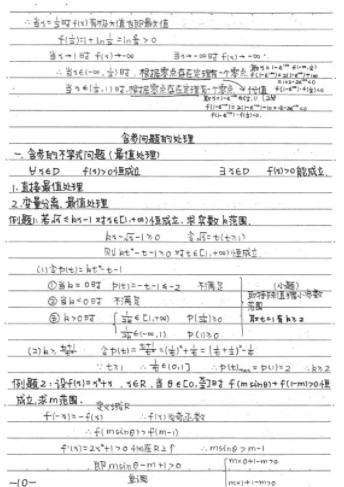 ∴ 当x=½时 f(x)有极大值也即最大值
f(½)=1+ln½=ln e/2>0
当x→1时 f(x)→-∞ 当x→-∞时 f(x)→-∞
∴ 当x∈(-∞,½)时，根据零点存在定理有一个零点
当x∈(½,1)时，根据零点存在定理有一个零点
含参问题的处理
一、含参的不等式问题（最值处理）
∀x∈D f(x)>0恒成立 ∃x∈D f(x)>0能成立
1.直接最值处理
2.变量分离、最值处理
例题1：若√x≤kx-1对x∈[1,+∞)恒成立，求实数k范围.
kx-√x-1≥0 令√x=t(t≥1)
则kt²-t-1≥0对t∈[1,+∞)恒成立
(1)令p(t)=kt²-t-1
①当k=0时 p(t)=-t-1≤-2 不满足
②当k<0时 不满足
③k>0时 1/2k∈[1,+∞) P(1/2k)≥0
1/2k∈(-∞,1) P(1)≥0
(小题)
取t=1有k≥2
(2)k≥(t+1)/t² 令p(t)=(t+1)/t²=(1/t)²+1/t=(1/t+½)²-¼
∵t≥1 ∴1/t∈(0,1] ∴p(t)max=p(1)=2 ∴k≥2
例题2：设f(x)=x³+x，x∈R，当θ∈[0,π/2]时 f(msinθ)+f(1-m)>0恒
成立，求m范围.
定义域R
f(-x)=-f(x) ∴f(x)为奇函数
∴f(msinθ)>f(m-1)
f'(x)=3x²+1>0 f(x)在R上↑ ∴msinθ>m-1
即msinθ-m+1>0
m×0+1-m>0
单调
m×1+1-m>0
-10-